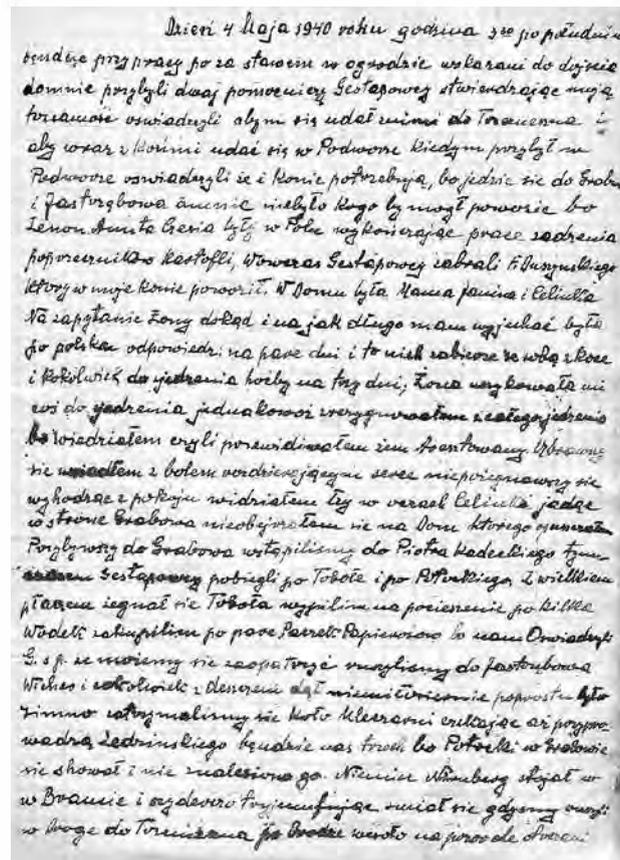 Dzień 4 Maja 1940 roku godzina 3 30 po południu
bendąc przy pracy po za stawem w ogrodzie wskazani do dojścia
domnie przybyli dwaj pomocnicy Gestapowcy stwierdzając moją
torzsamość oswiadczyli abym się udał znimi do
aby wraz z Końmi udać się w Podworze Kiedym przybył na
Podworze oswiadczyli że i Konie potrzebują, bo jedzie sie do Grabowa
i Jastrzębowa amnie niebyło Kogo by mogł powozic bo
Zenon Anista Gienia były w Polu wykończając prace sadzenia
Kartofli, Wowczas Gestapowcy zabrali F. Duszynskiego
Ktory w moje Konie powoził. W Domu była Mama Janina i Celinka
Na zapytanie Zony dokąd i na jak długo mam wyjechać była
po polsku odpowiedz: na pare dni i to niech zabierze ze sobą z koce
i do jedzenia hoćby na trzy dni; Zona wyrykowała mi
coś do jedzenia jednakowoż zrezygnowałem z całego jedzenia
bo wiedziałem czyli przewidiwałem żem Aresztowany. Ubrawszy
sie z bolem rozdzierającym serce niepożegnawszy się
wyhodząc z pokoju widziałem łzy w oczach Celinki jadąc
w strone Grabowa nieobejrzałem sie na Dom ktorego
Przybywszy do Grabowa wstąpilismy do Piotra Kadeckiego tym
Gestapowcy pobiegli po Tobołe i po Potockiego, Z wielkiem
płaczem żegnał sie Toboła wypilim na pocieszenie po kilka
Wodek zakupilim po pare Paczek Papierosow bo nam Oswiadczyli
G. s p. ze możemy sie zaopatrzyć ruszylismy do Jastrzębowa
Wicher i z deszczem dął niemiłosiernie poprostu było
zimno zatrzymalismy sie Koło Mleczarni czekając aż przypro-
wadzą Zedzinskiego bendzie nas trzech bo Potocki w Grabowie
sie shował i nie znaleziono go. Niemiec Nürnberg stojał w
w Bramie i tryjumfując smiał sie gdysmy ruszyli
w Droge do po Drodze wesoło na przovale